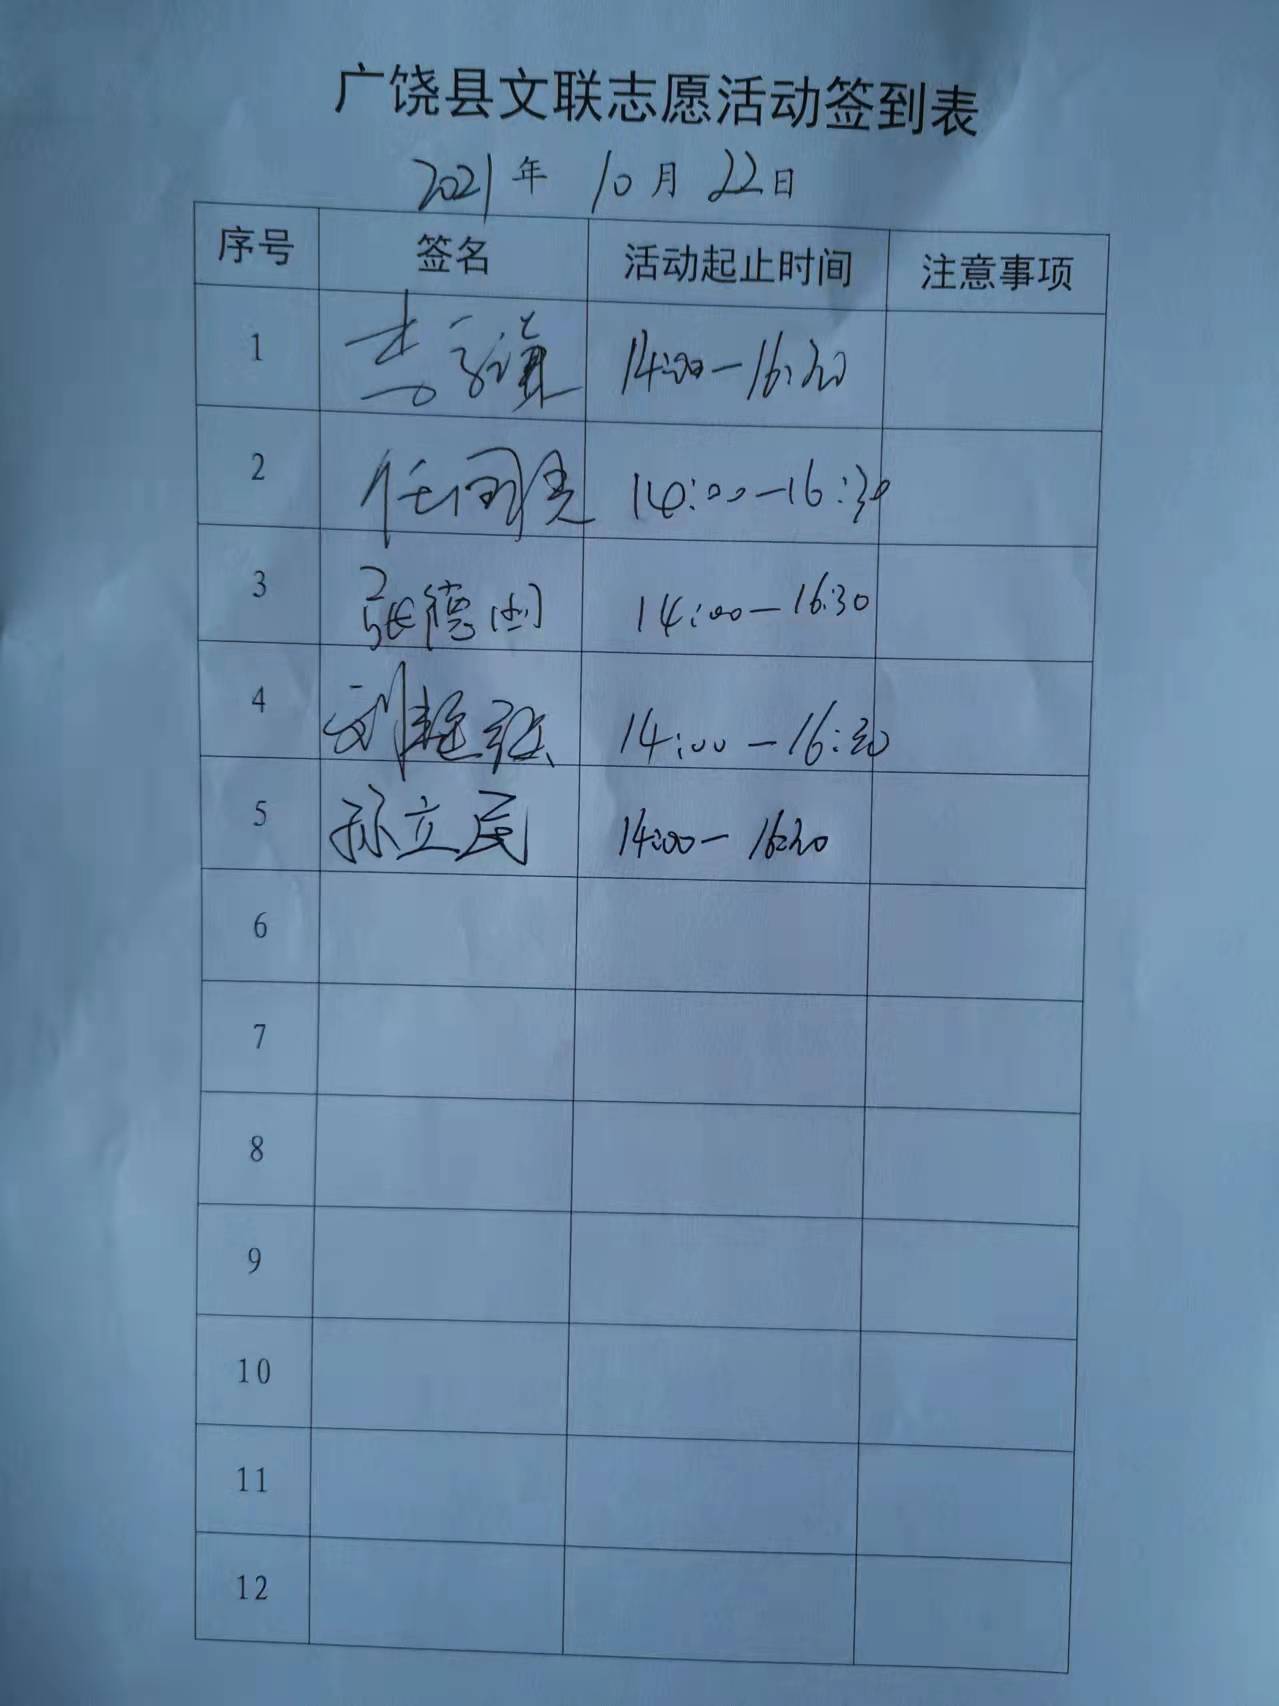 广饶县文联志愿活动签到表
2021年 10月 22日
序号 签名 活动起止时间 注意事项
1 14:00-16:30
2 任国 14:00-16:30
3 张德 14:00-16:30
4 刘 14:00-16:30
5 孙立民 14:00-16:30
6
7
8
9
10
11
12